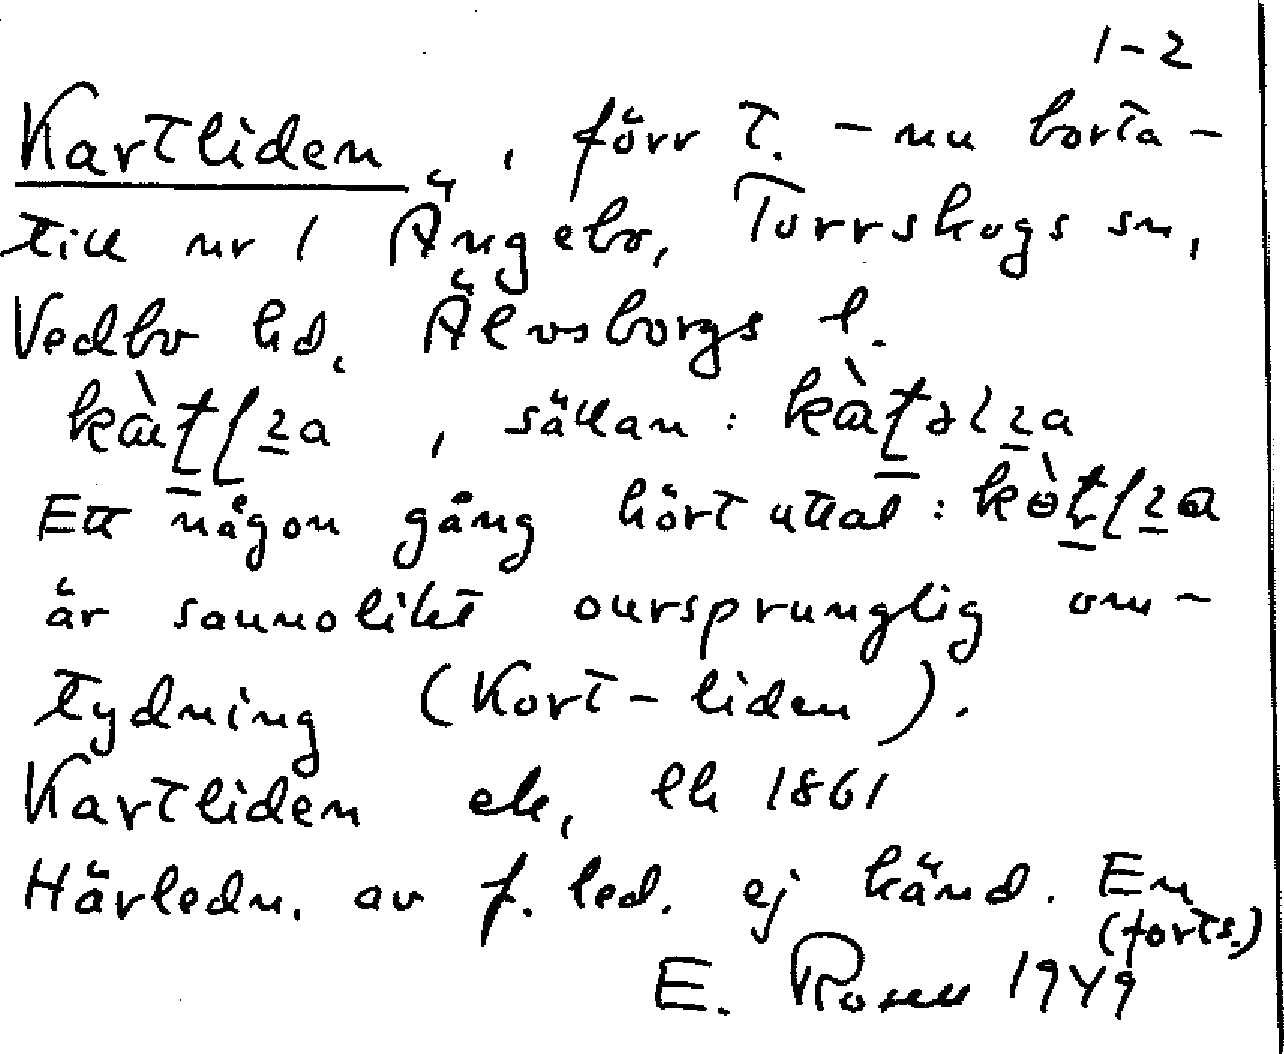 1-2
Kartliden, förr t. - nu borta -
till nr 1 Ängebo, Torrskogs sn,
Vedbo hd, Älvsborgs l.
, sällan:
Ett någon gång hört uttal:
är sannolikt oursprunglig om-
tydning (Kort-liden).
Kartliden ek, lh 1861
Härledn. av f. led. ej känd. En
(forts.)
E. Rosell 1949